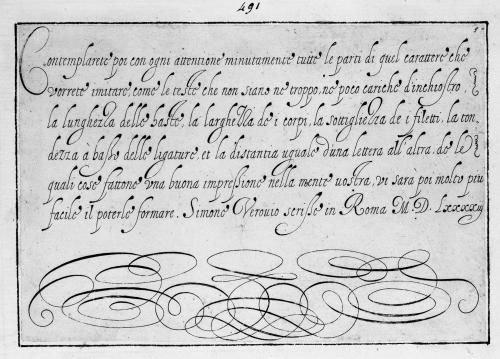 491
Contemplarete poi con ogni attentione minutamente tutte le parti di quel carattere che
vorrete imitare, come le teste che non siano ne troppo, ne poco cariche d'inchiostro,
la lunghezza delle haste, la larghezza de i corpi, la sottigliezza de i filetti, la ton-
dezza à basso delle ligature, et la distantia uguale d'una lettera all'altra, de le
quali cose fattone una buona impressione nella mente vostra, vi sarà poi molto piu
facile il poterle formare. Simone Verovio scrisse in Roma M. D. Lxxxxiij